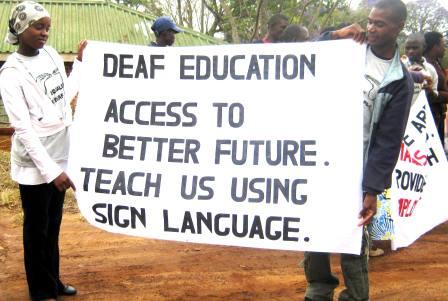 DEAF EDUCATION
ACCESS TO
BETTER FUTURE.
TEACH US USING
SIGN LANGUAGE.
PROVIDE